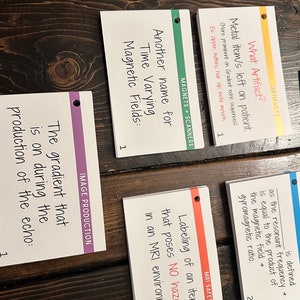 IMAGE PRODUCTION
The gradient that
is on during the
production of the echo:
1
MAGNETS + SCANNERS
Another name for
Time Varying
Magnetic Fields:
1
ARTIFACTS
What Artifact?
Metal item/s left on patient.
(More prominent on Gradient echo sequences)
1
MRI SAFE
Labeling of an
that poses NO haz
in an MRI environ
is defined
as the resonant
frequency
is equal to the product of
the magnetic field +
gyromagnetic ratio.